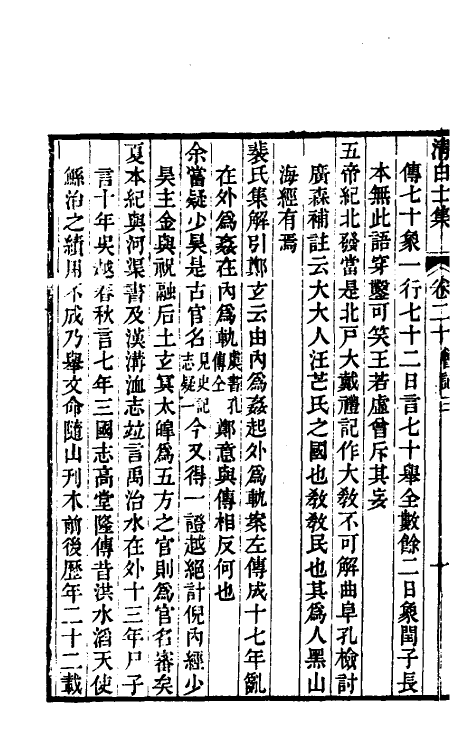 清白士集　卷二十
傳七十象一行七十二日言七十舉全數餘二日象閏子長
本無此語穿鑿可笑王若虛曾斥其妄
五帝紀北發當是北戸大戴禮記作大教不可解曲阜孔檢討
廣森補註云大大人汪芒氏之國也教教民也其爲人黑山
海經有焉
裴氏集解引鄭玄云由內爲姦起外爲軌案左傳成十七年亂
在外爲姦在內爲軌虞書孔傳仝鄭意與傳相反何也
余嘗疑少昊是古官名見史記志疑一今又得一證越絕計倪內經少
昊主金與祝融后土玄冥太皞爲五方之官則爲官名審矣
夏本紀與河渠書及漢溝洫志竝言禹治水在外十三年尸子
言十年吳越春秋言七年三國志高堂隆傳昔洪水滔天使
鯀治之績用不成乃舉文命隨山刊木前後歷年二十二載